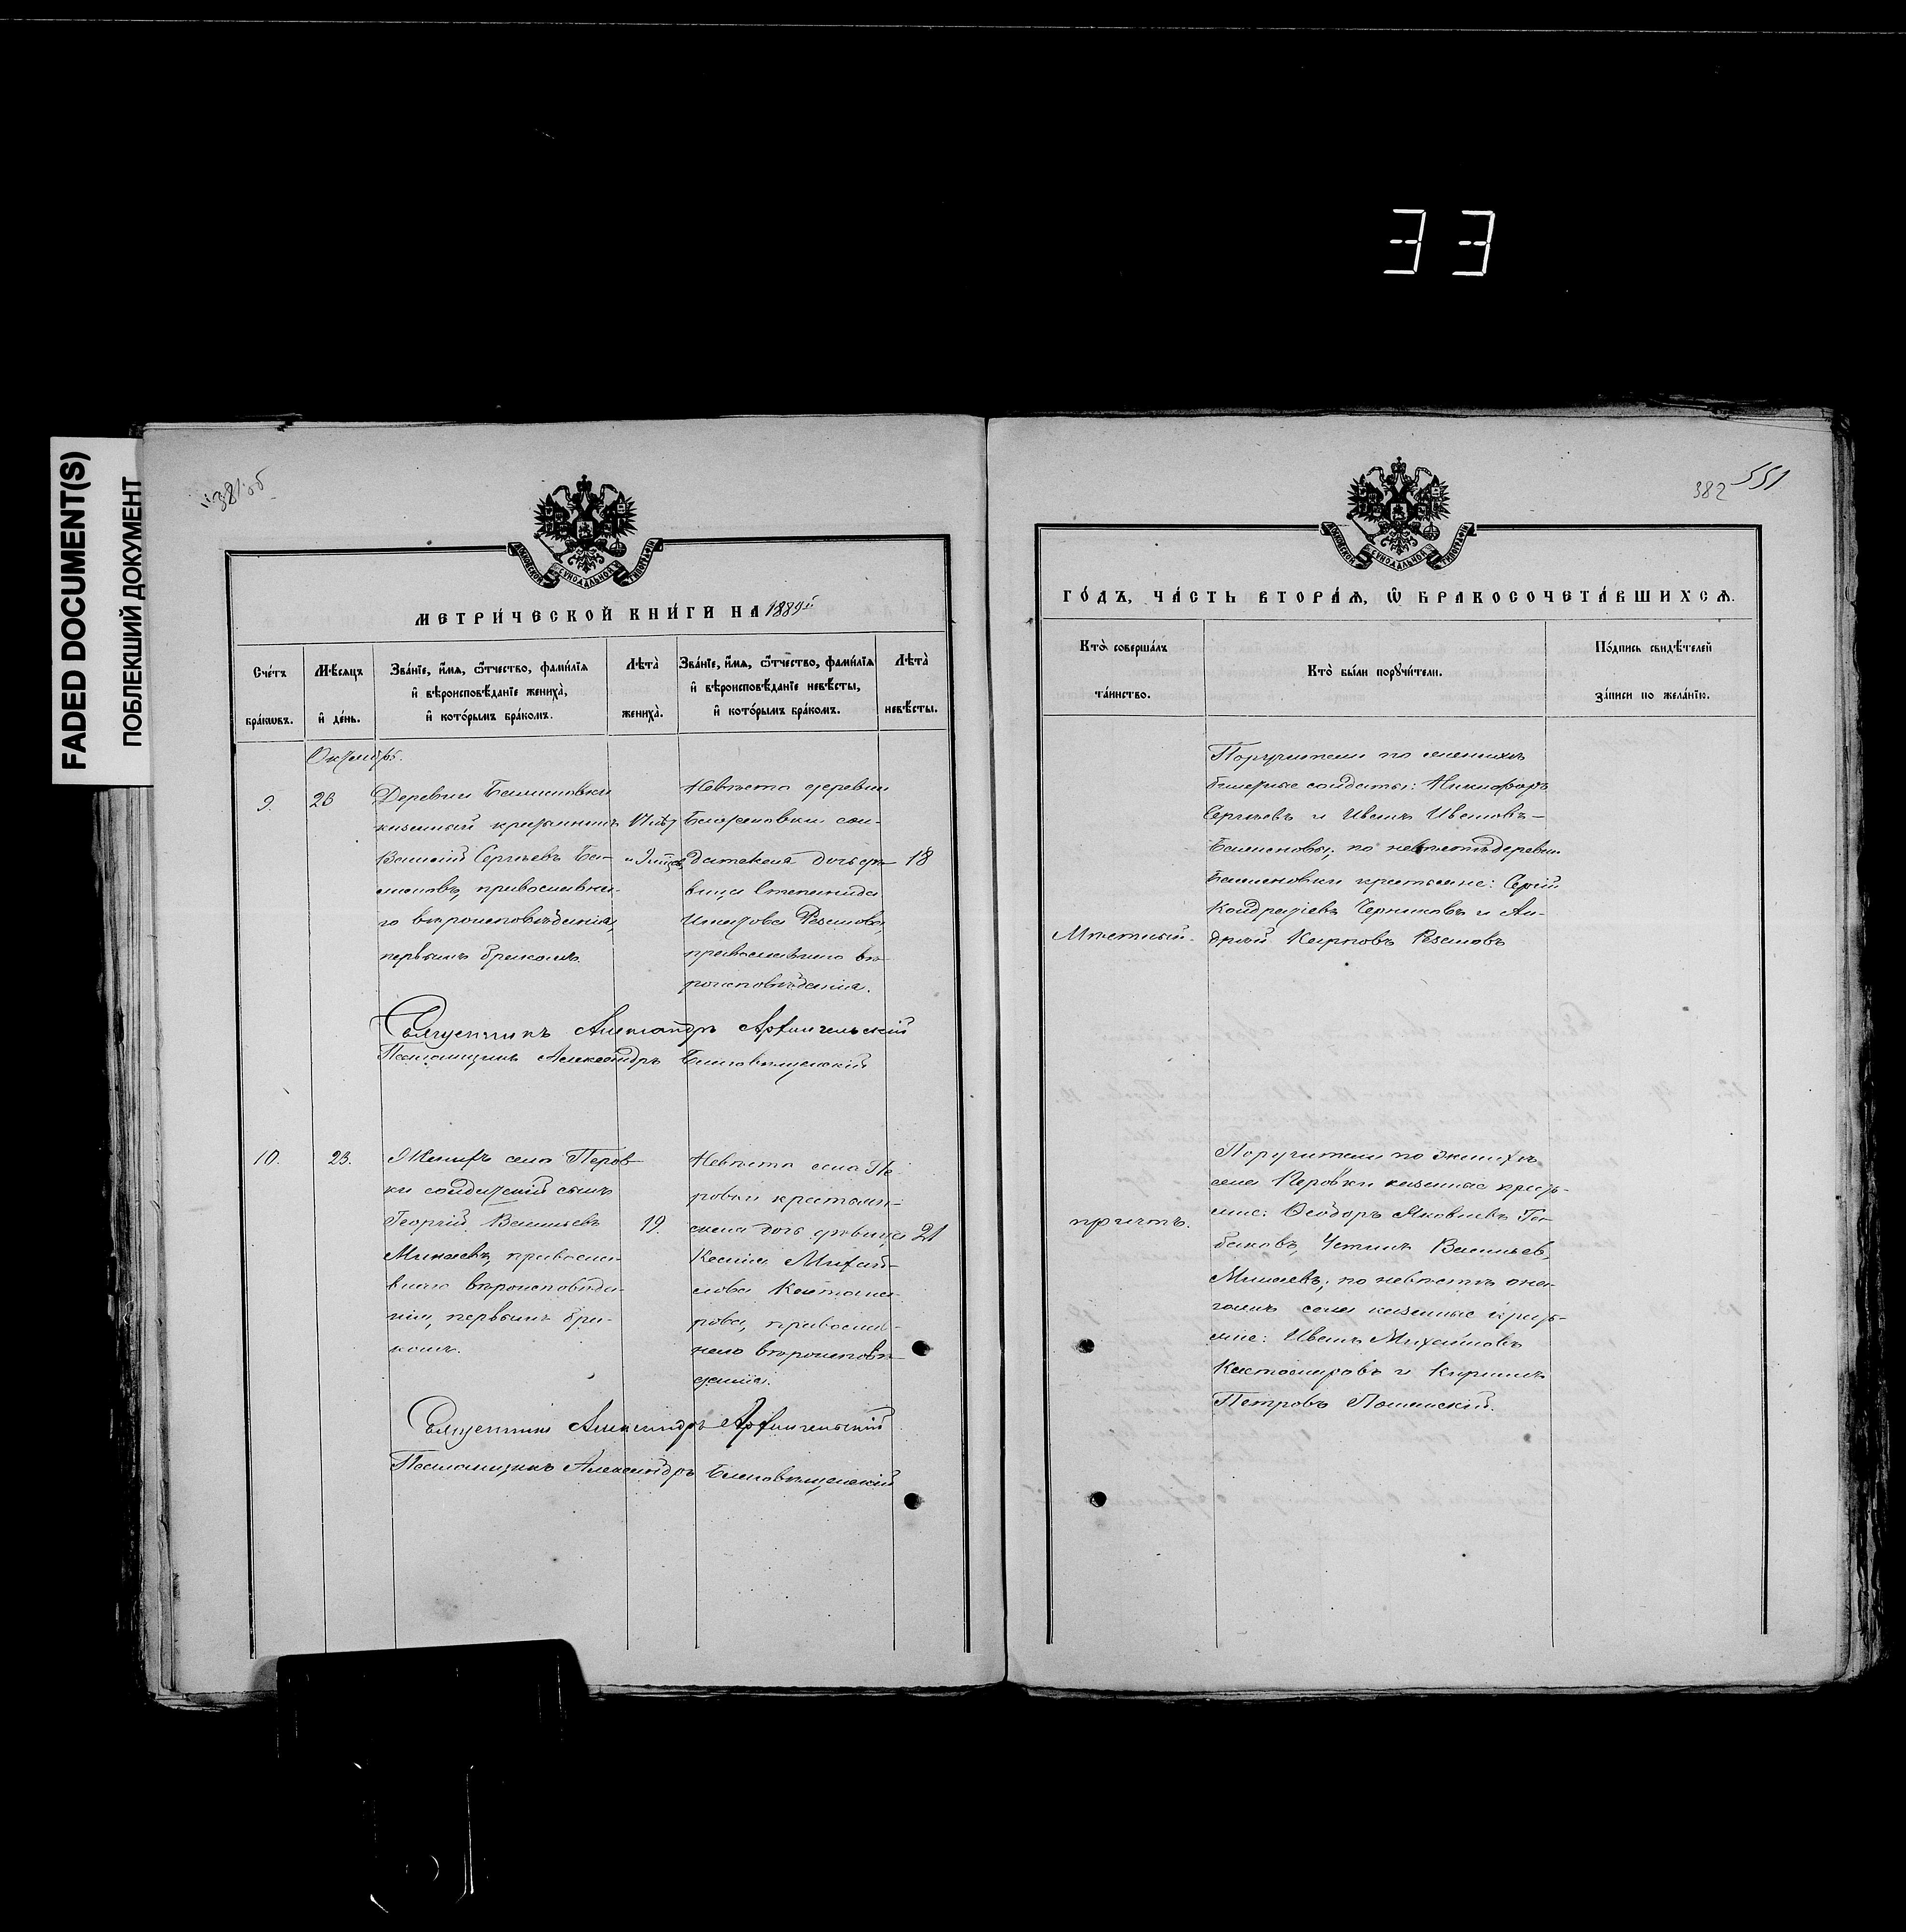 33
FADED DOCUMENT(S)
ПОБЛЕКШИЙ ДОКУМЕНТ
381об
МЕТРИ́ЧЕСКОЙ КНИ́ГИ НА 1889й
Сче́тъ бра́кѡвъ.
Мѣ́сѧцъ и҆ де́нь.
Зва́нїе, и҆́мѧ, ѻ҆́тчество, фами́лїѧ и҆ вѣроисповѣ́данїе жениха̀, и҆ кото́рымъ бра́комъ.
Лѣта̀ жениха̀.
Зва́нїе, и҆́мѧ, ѻ҆́тчество, фами́лїѧ и҆ вѣроисповѣ́данїе невѣ́сты, и҆ кото́рымъ бра́комъ.
Лѣта̀ невѣ́сты.
Октябрь.
9.
23
Деревни
казенный крестьянинъ
Василій Сергѣевъ Ба-
православна-
го вѣроисповѣданія,
первымъ бракомъ.
17 лѣт
и 9 мѣсяц
Невѣста деревни
сол-
датская дочь дѣ-
вица Степанида
Резанова,
православнаго вѣ-
роисповѣданія.
18
Священникъ Александръ Архангельскій
Псаломщикъ Александръ Благовѣщенскій
10.
23.
Женихъ села Перов-
ки солдатскій сынъ
Георгій Васильевъ
Минаевъ, правосла-
внаго вѣроисповѣда-
нія, первымъ бра-
комъ.
19.
Невѣста села Пе-
ровки крестьян-
ская дочь дѣвица
Ксенія Михай-
лова Кастома-
рова, православ-
наго вѣроисповѣ-
данія.
21
Священникъ Александръ Архангельскій
Псаломщикъ Александръ Благовѣщенскій
382 551
ГО́ДЪ, ЧА́СТЬ ВТОРА́Ѧ, Ѡ҆ БРАКОСОЧЕТА́ВШИХСѦ.
Кто̀ соверша́лъ та́инство.
Кто̀ бы́ли порꙋчи́тели.
По́дпись свидѣ́телей за́писи по жела́нїю.
Мѣстный
Поручители по женихѣ
билетные солдаты: Никифоръ
Сергѣевъ и Иванъ Ивановъ
по невѣстѣ деревни
крестьяне: Сергій
Кондратіевъ Черниковъ и Ан-
дрей Карповъ Резановъ
причтъ.
Поручители по женихѣ
села Перовки казенные кресть-
яне: Ѳеодоръ Яковлевъ
Устинъ Васильев,
Минаевъ; по невѣстѣ она-
гожъ села казенные кресть-
яне: Иванъ Михайловъ
Кастомаровъ и Кириллъ
Петровъ